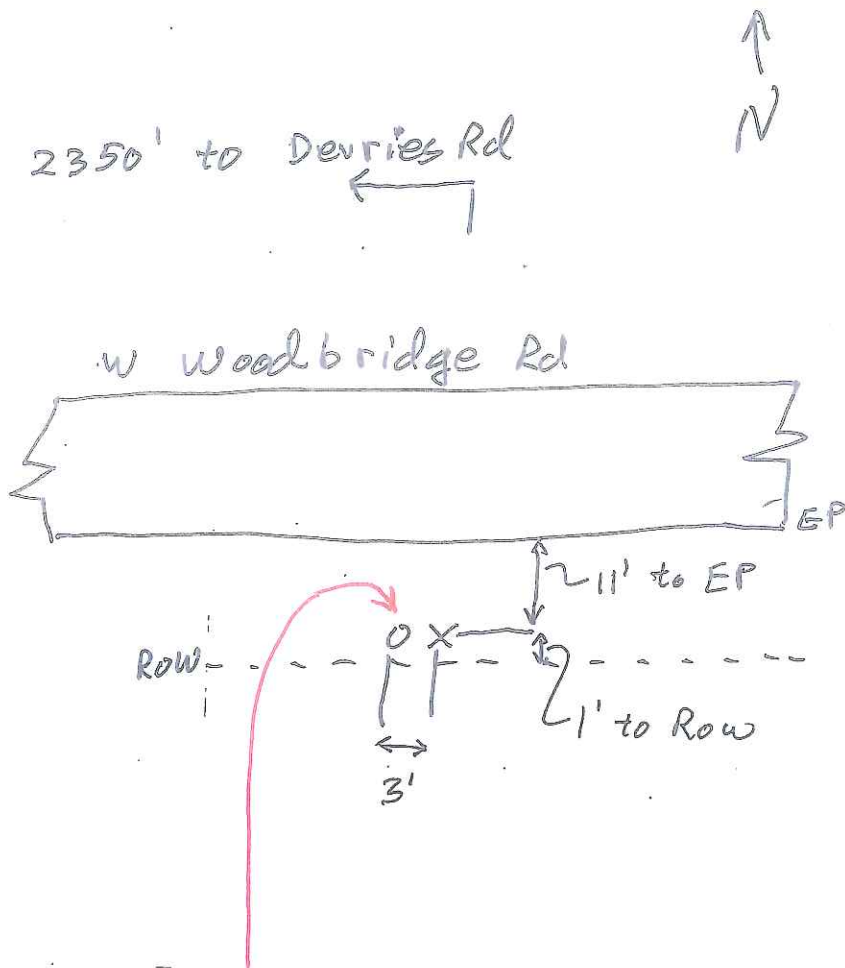 N
2350' to Devries Rd
W Woodbridge Rd
EP
~11' to EP
O X
ROW
1' to Row
3'